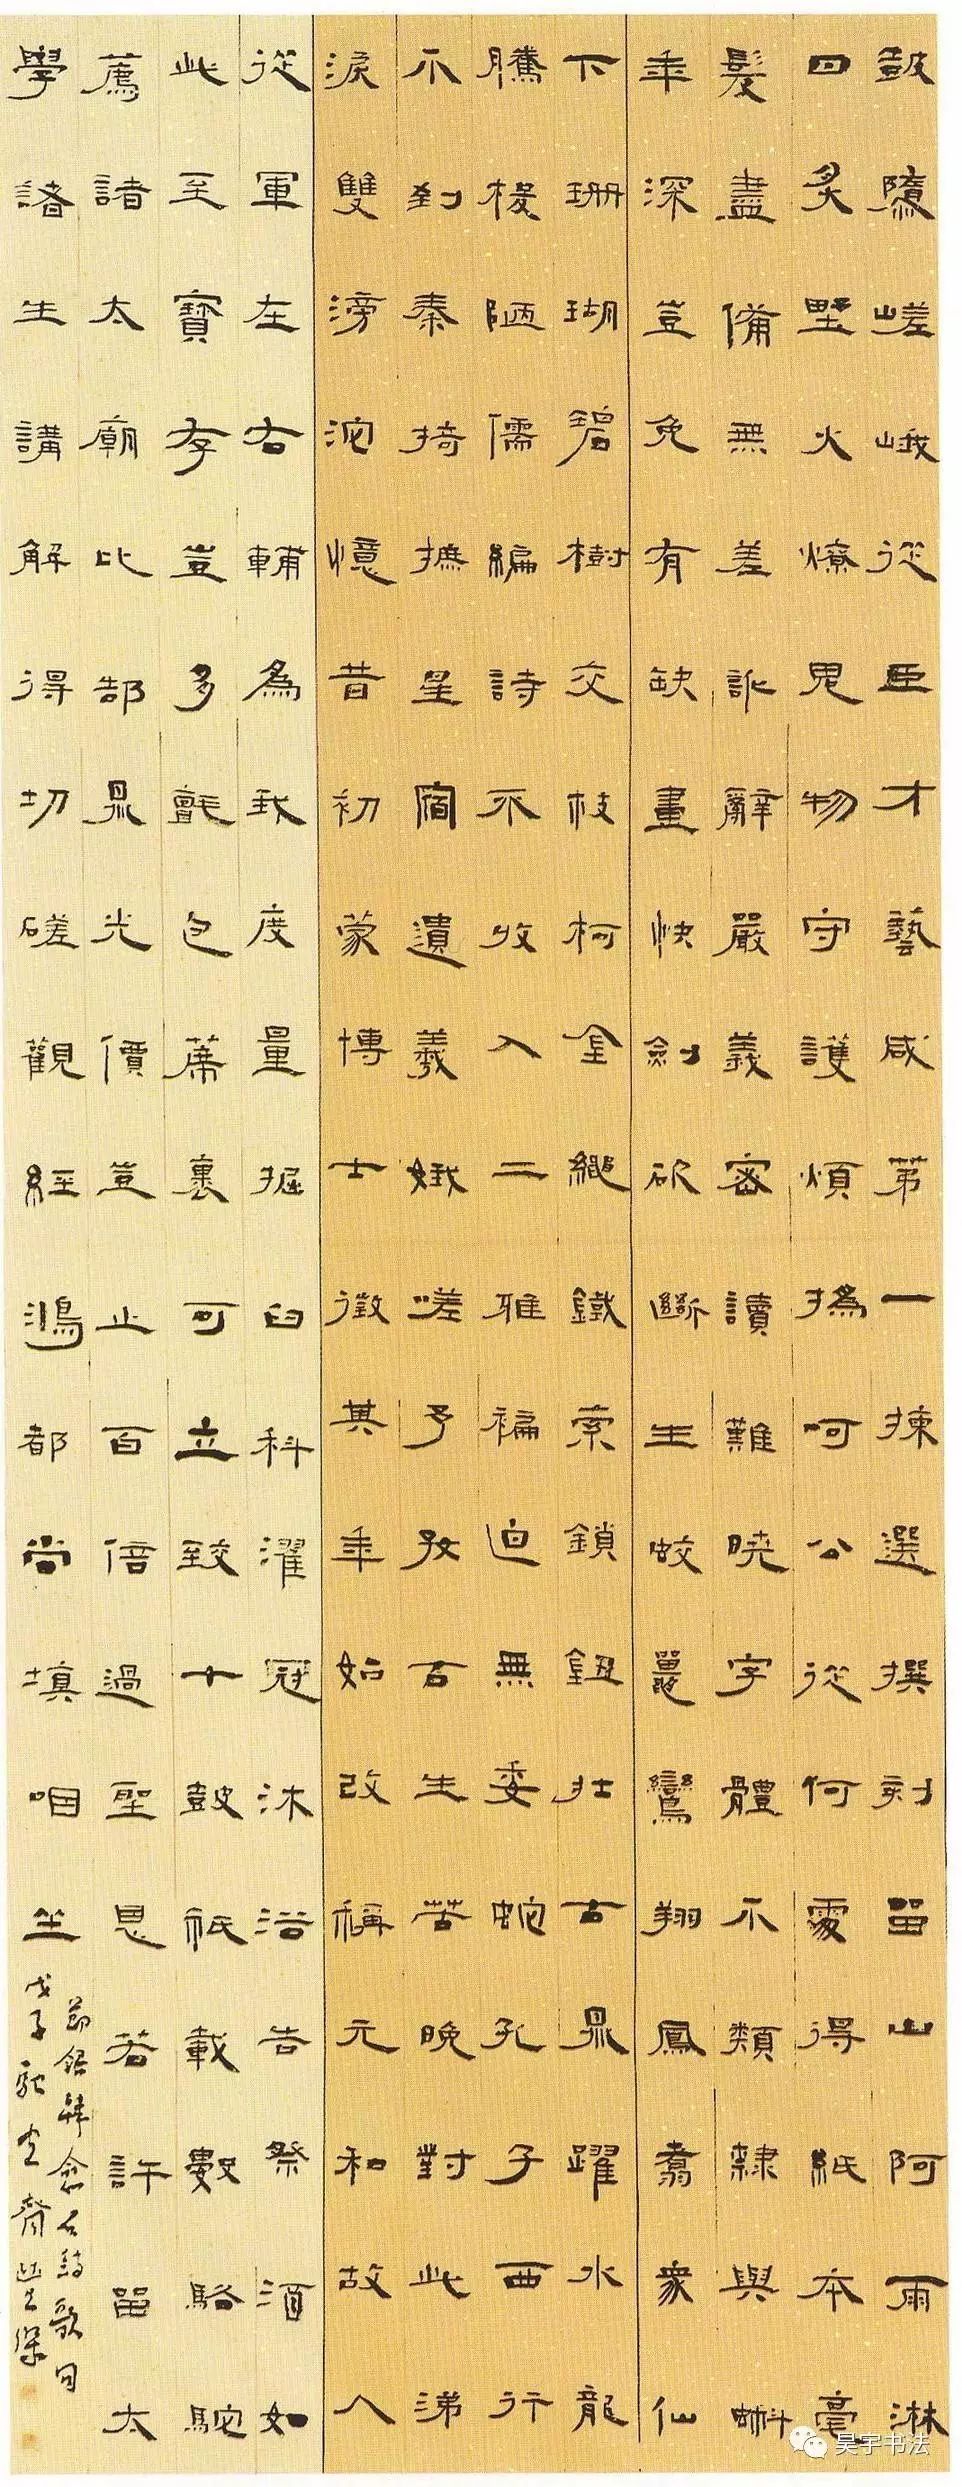 鼓隳嵯峨從臣才藝咸第一揀選撰刻留山阿雨淋
日炙野火燎鬼物守護煩撝呵公從何處得紙本毫
髮盡備無差訛辭嚴義密讀難曉字體不類隸與蝌
年深豈免有缺畫快劍斫斷生蛟鼉鸞翔鳳翥衆仙
下珊瑚碧樹交枝柯金繩鐵索鎖鈕壯古鼎躍水龍
騰梭陋儒編詩不收入二雅褊迫無委蛇孔子西行
不到秦掎摭星宿遺羲娥嗟予好古生苦晚對此涕
淚雙滂沱憶昔初蒙博士徵其年始改稱元和故人
從軍在右輔為我度量掘臼科濯冠沐浴告祭酒如
此至寶存豈多氈包席裹可立致十鼓祇載數駱駝
薦諸太廟比郜鼎光價豈止百倍過聖恩若許留太
學諸生講解得切磋觀經鴻都尚填咽坐
節錄韓愈石鼓歌句
戊子
吴宇书法